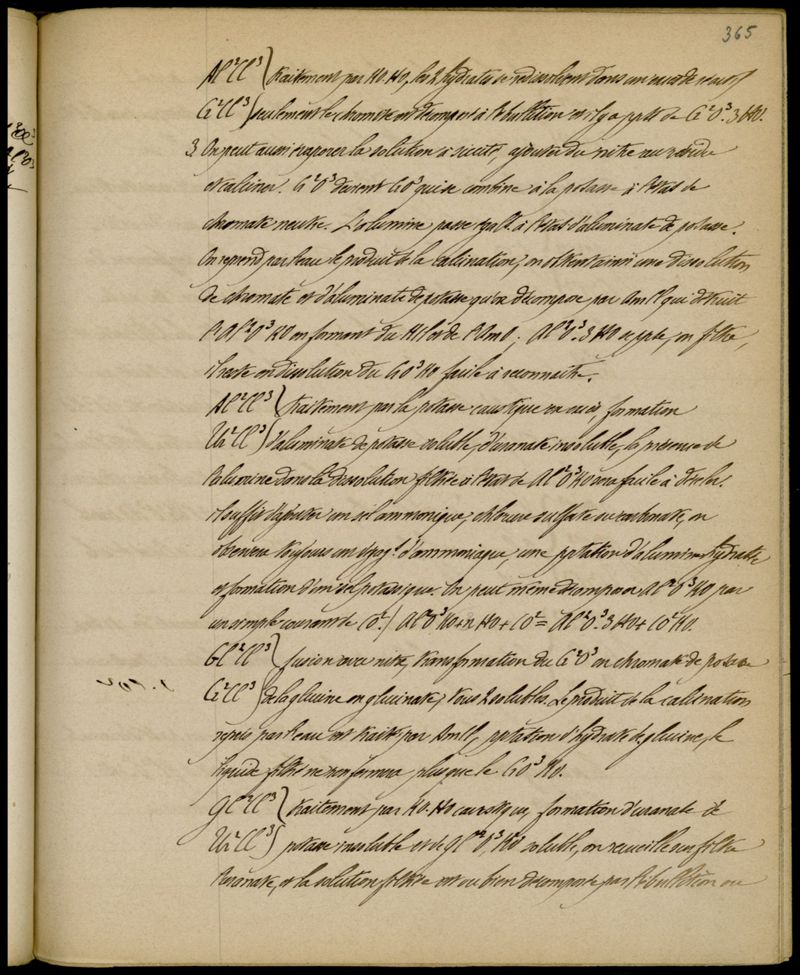 365
Al²Cl³ } traitement par KO.HO, les 2 hydrates se redissolvent dans un excès de réactif
C²Cl³ } seulement le chromite est décomposé à l'ébullition et il y a ppté de C²O³.3HO.
3. On peut aussi évaporer la solution à siccité, ajouter du nitre au résidu
et calciner. C²O³ devient CO³ qui se combine à la potasse à l'état de
chromate neutre. L'alumine passe égalt. à l'état d'aluminate de potasse.
On reprend par l'eau le produit de la calcination; on obtient ainsi une dissolution
de chromate et d'aluminate de potasse qu'on décompose par AmCl qui détruit
l'Al²O³KO en formant du KCl et de l'AmO; Al²O³.3HO se ppte, on filtre,
il reste en dissolution du CO³KO facile à reconnaître.
Al²Cl³ } traitement par la potasse caustique en excès, formation
Ur²Cl³ } d'aluminate de potasse soluble, d'uranate insoluble, la présence de
l'alumine dans la dissolution filtrée à l'état de Al²O³KO sera facile à déceler.
Il suffit d'ajouter un sel ammonique, chlorure sulfate ou carbonate, on
observera toujours un dégagt. d'ammoniaque, une pptation d'alumine hydratée
et formation d'un sel potassique. On peut même décomposer Al²O³KO par
un simple courant de CO². / Al²O³KO + n HO + CO² = Al²O³.3HO + CO²KO.
Gl²Cl³ } fusion avec nitre, transformation du C²O³ en chromate de potasse
C²Cl³ } de la glucine en glucinate, tous 2 solubles. Le produit de la calcination
repris par l'eau est traité par AmCl, pptation d'hydrate de glucine, le
liquide filtré ne renfermera plus que le CO³KO.
Gl²Cl³ } traitement par KO.HO caustique, formation d'uranate de
Ur²Cl³ } potasse insoluble et de Gl²O³,KO soluble, on recueille sur filtre
l'uranate, et la solution filtrée est ou bien décomposée par l'ébullition ou